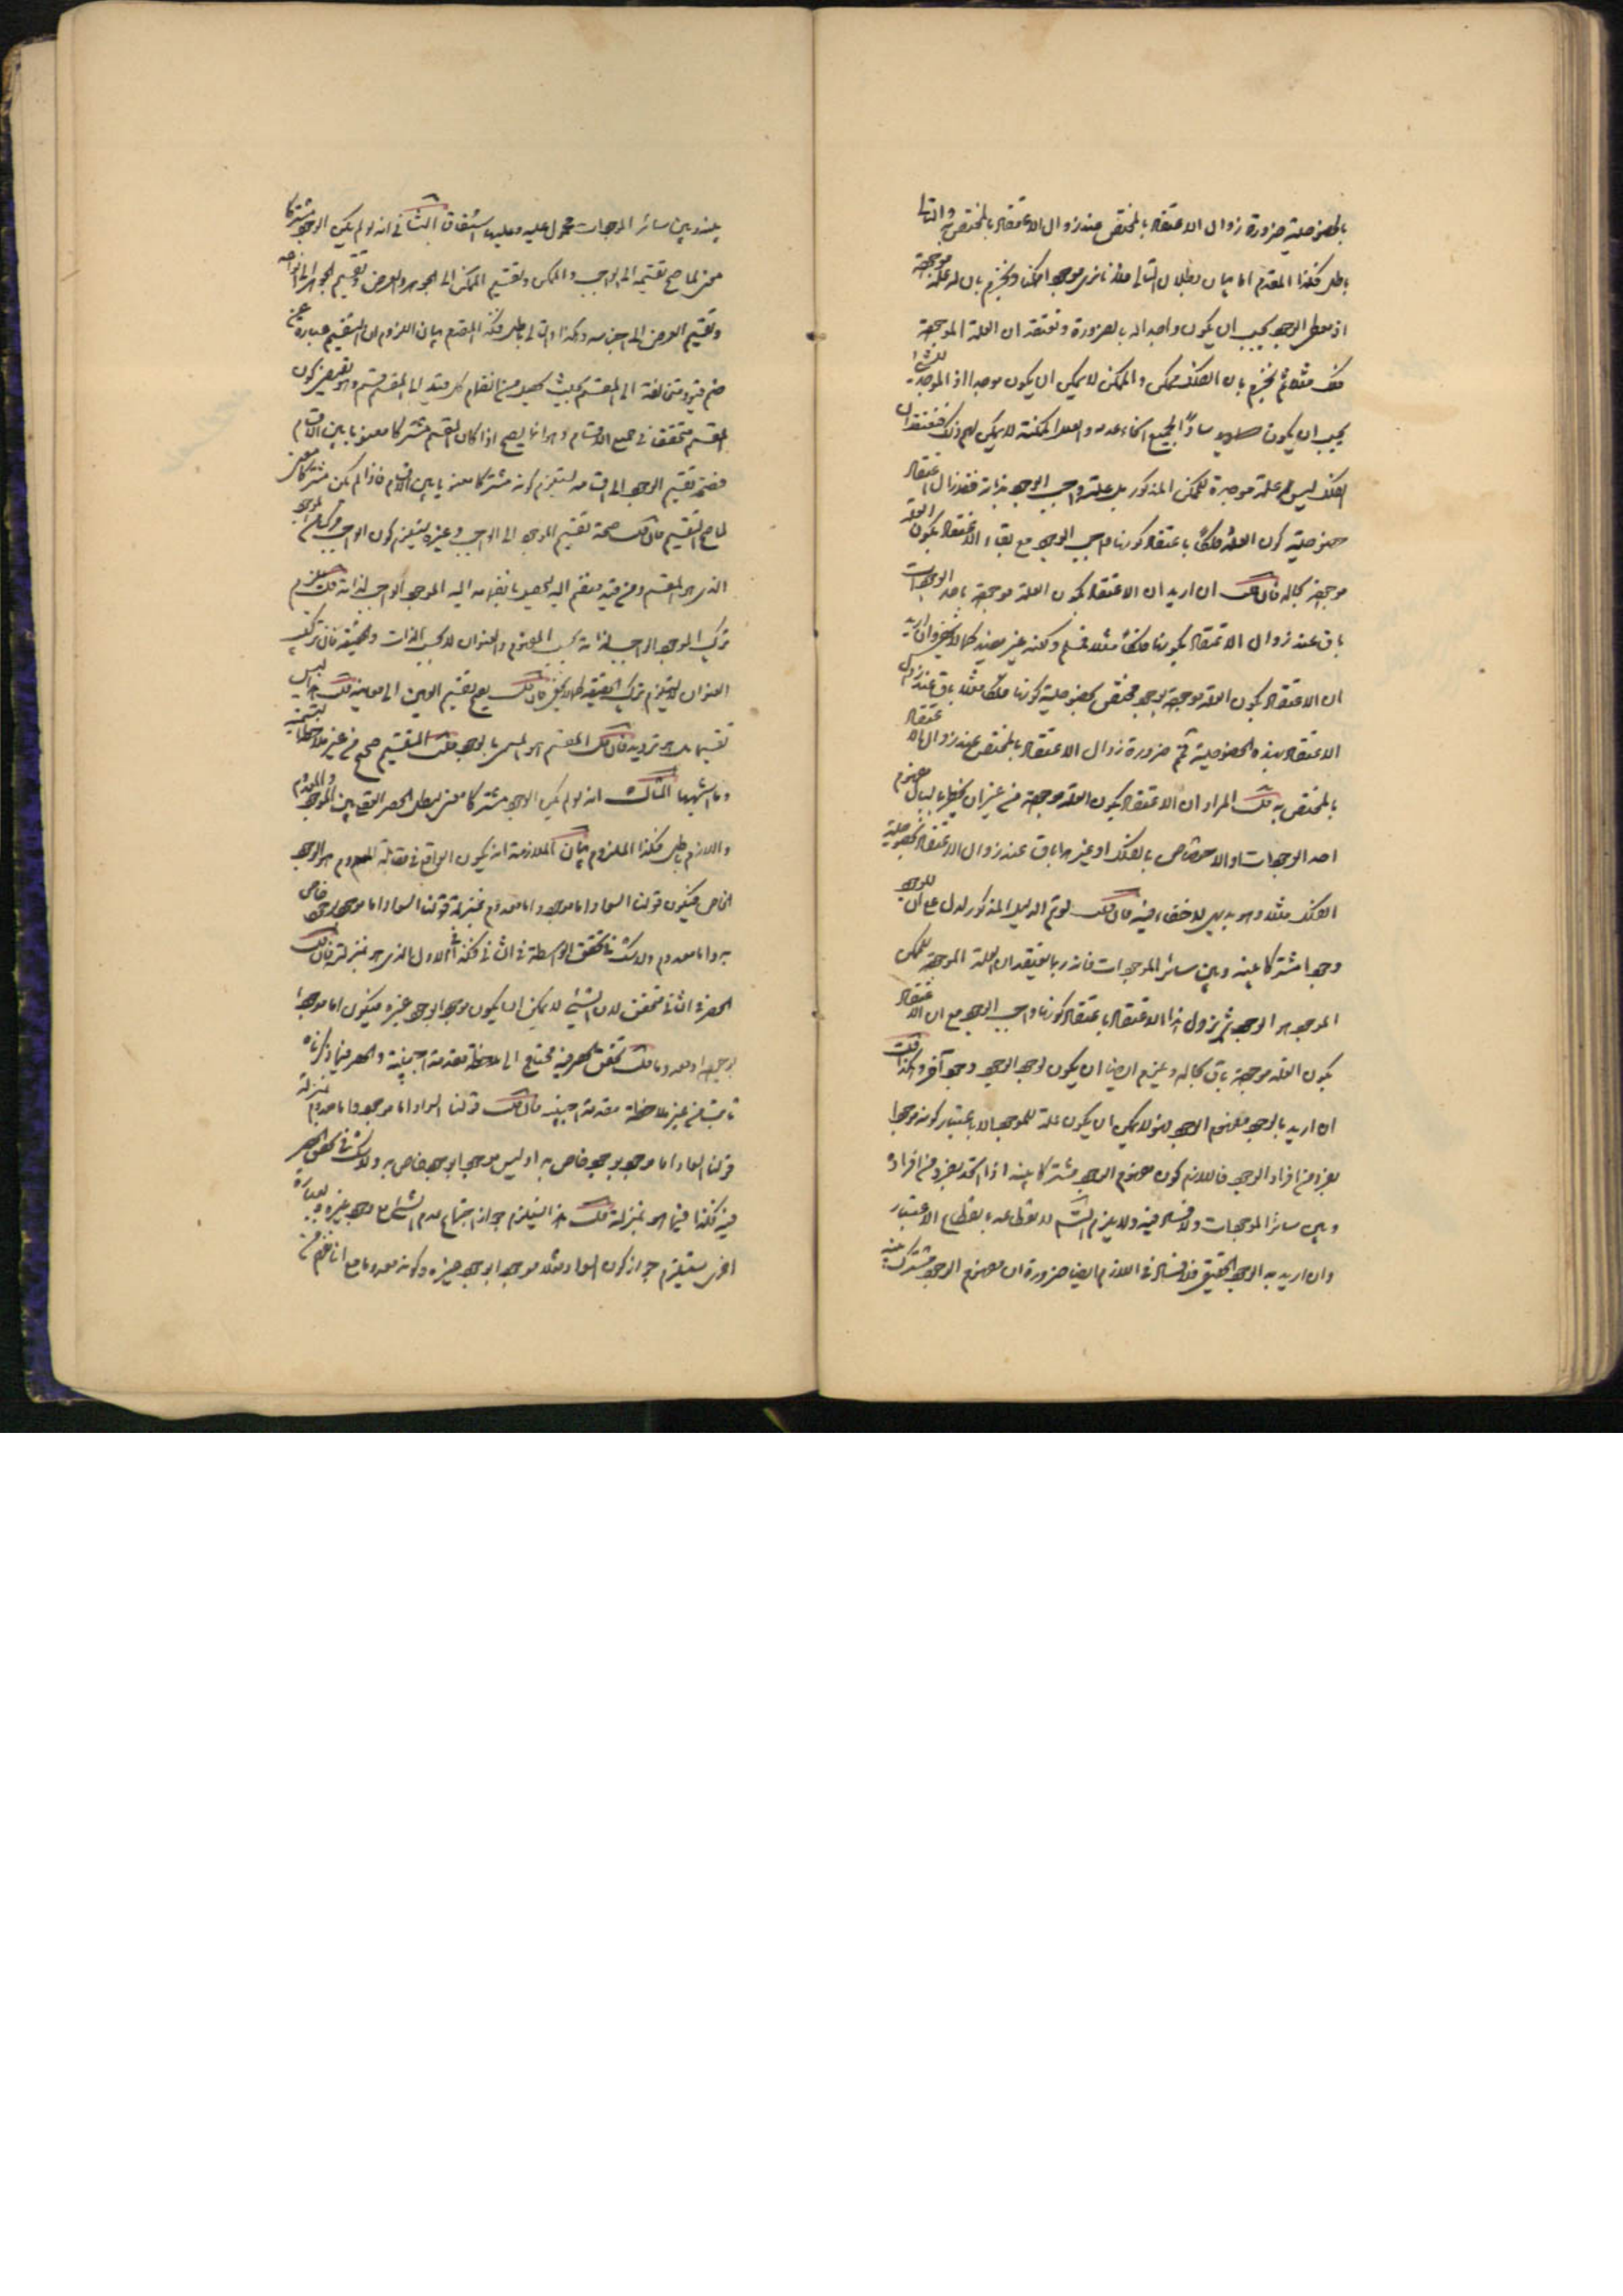 بالخصوصية ضرورة زوال الاعتقاد بالمختص عند زوال الاعتقاد بالمختص به والتالي
باطل فكذا المقدم اما بيان بطلان التالي فلانا نرى موجودا ممكنا ونجزم بان له علة موجدة
اذ معطي الوجود يجب ان يكون واجدا له بالضرورة ونعتقد ان العلة الموجدة
فلك مثلا ثم نجزم بان الفلك ممكن والممكن لا يمكن ان يكون موجدا اذ الموجد للشئ
يجب ان يكون سادا لجميع انحاء عدمه والعلة الممكنة لا يمكن لهم ذلك فنعتقد ان
الفلك ليس علة موجدة للممكن المذكور بل علته واجب الوجود بذاته فقد زال اعتقاد
خصوصية كون العلة فلكا باعتقاد كونها واجب الوجود مع بقاء الاعتقاد بكون العلة
موجودة بحاله فان قلت ان اريد ان الاعتقاد بكون العلة موجودة باحد الوجودات
باق عند زوال الاعتقاد بكونها فلكا مثلا فمسلم ولكنه غير مفيد كما لا يخفى وان اريد
ان الاعتقاد بكون العلة موجودة بوجود مختص بخصوصية كونها فلكا مثلا باق عند زوال
الاعتقاد بهذه الخصوصية ثم ضرورة زوال الاعتقاد بالمختص عند زوال الاعتقاد
بالمختص به قلت المراد ان الاعتقاد بكون العلة موجودة من غير ان يخطر بالبال مفهوم
احد الوجودات او الاختصاص بالفلك او غيرها باق عند زوال الاعتقاد بخصوصية
الفلك مثلا وهو بديهي لا خفاء فيه فان قلت لو تم الدليل المذكور لدل على ان للوجود
وجودا مشتركا بينه وبين سائر الموجودات فانه ربما يعتقد ان العلة الموجدة للممكن
الموجود هو الوجود ثم يزول هذا الاعتقاد باعتقاد كونها واجب الوجود مع ان الاعتقاد
بكون العلة موجودة باق بحاله وغيره ايضا ان يكون لوجود الوجود وجود آخر وهكذا قلت
ان اريد بالوجود مفهوم الوجود فهو لا يمكن ان يكون علة للموجود الا باعتبار كونه موجودا
بفرد من افراد الوجود فاللازم كون مفهوم الوجود مشتركا بينه اذا اتحد بفرد من افراده
وبين سائر الموجودات ولا فساد فيه ولا يلزم التسلسل لانقطاعه بانقطاع الاعتبار
وان اريد به الوجود الحقيقي فلا فساد في اللازم ايضا ضرورة ان مفهوم الوجود مشترك بينه
بينه وبين سائر الموجودات محمول عليه وعليها اشتقاقا الثاني انه لو لم يكن الوجود مشتركا
معنى لما صح تقسيمه الى الواجب والممكن وتقسيم الممكن الى الجوهر والعرض وتقسيم الجوهر الى انواعه
وتقسيم العرض الى اجناسه وهكذا والتالي باطل فكذا المقدم بيان اللزوم ان التقسيم عبارة عن
ضم قيود متخالفة الى المقسم بحيث يحصل من انضمام كل قيد الى المقسم قسم وهو يقتضي كون
المقسم متحققا في جميع الاقسام وهو انما يصح اذا كان المقسم مشتركا معنويا بين الاقسام
فصحة تقسيم الوجود الى اقسامه يستلزم كونه مشتركا معنويا بين الاقسام فاذا لم يكن مشتركا معنى
لما صح التقسيم فان قلت صحة تقسيم الموجود الى الواجب وغيره يستلزم كون الواجب مركبا من الموجود
الذي هو المقسم ومن قيد منضم اليه يحصل بانضمامه اليه الموجود الواجب لذاته قلت يلزم
تركب الموجود الواجب لذاته بحسب المفهوم والعنوان لا بحسب الذات والحقيقة فان تركب
العنوان لا يستلزم تركب الحقيقة كما لا يخفى فان قلت يصح تقسيم العين الى معانيه قلت هذا ليس
تقسيما بل هو ترديد فان قلت المقسم هو المسمى بالوجود قلت التقسيم صحيح من غير ملاحظة التسمية
وما اشبهها الثالث انه لو لم يكن الوجود مشتركا معنى لبطل الحصر العقلي بين الموجود والمعدوم
واللازم باطل فكذا الملزوم بيان الملازمة انه يكون الواقع في مقابلة المعدوم هو الوجود
الخاص فيكون قولنا السواد اما موجود واما معدوم بمنزلة قولنا السواد اما موجود بوجود خاص
به واما معدوم ولا شك في تحقق الواسطة في الثاني فكذا في الاول الذي هو بمنزلته فان قلت
الحصر في الثاني متحقق لان الشئ لا يمكن ان يكون موجودا بوجود غيره فيكون اما موجودا
بوجوده او معدوما قلت تحقق الحصر فيه محتاج الى ملاحظة مقدمة اجنبية والحصر فيما ذكرناه
ثابت من غير ملاحظة مقدمة اجنبية فان قلت قولنا السواد اما موجود واما معدوم بمنزلة
قولنا السواد اما موجود بوجود خاص به او ليس موجودا بوجود خاص به ولا شك في تحقق الحصر
فيه فكذا فيما هو بمنزلته قلت هذا يستلزم جواز اجتماع عدم الشئ مع وجود غيره وبعبارة
اخرى يستلزم جواز كون السواد مثلا موجودا بوجود غيره وكونه معدوما مع انا نجزم من